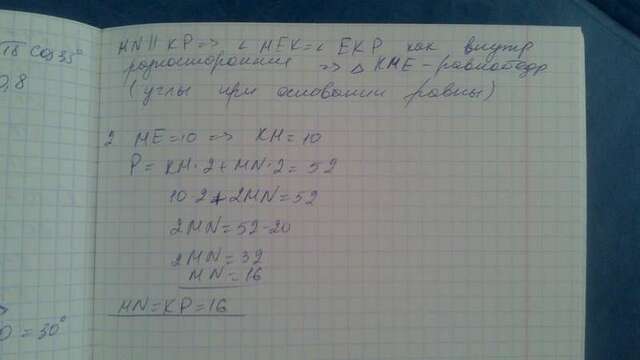 18 cos 35°
0,8
MN || KP => ∠ MEK = ∠ EKP как внутр
разносторонние => △ KME - равнобедр
(углы при основании равны)
2 ME = 10 => KM = 10
P = KM · 2 + MN · 2 = 52
10 · 2 + 2MN = 52
2MN = 52 - 20
2MN = 32
MN = 16
MN = KP = 16
O = 30°